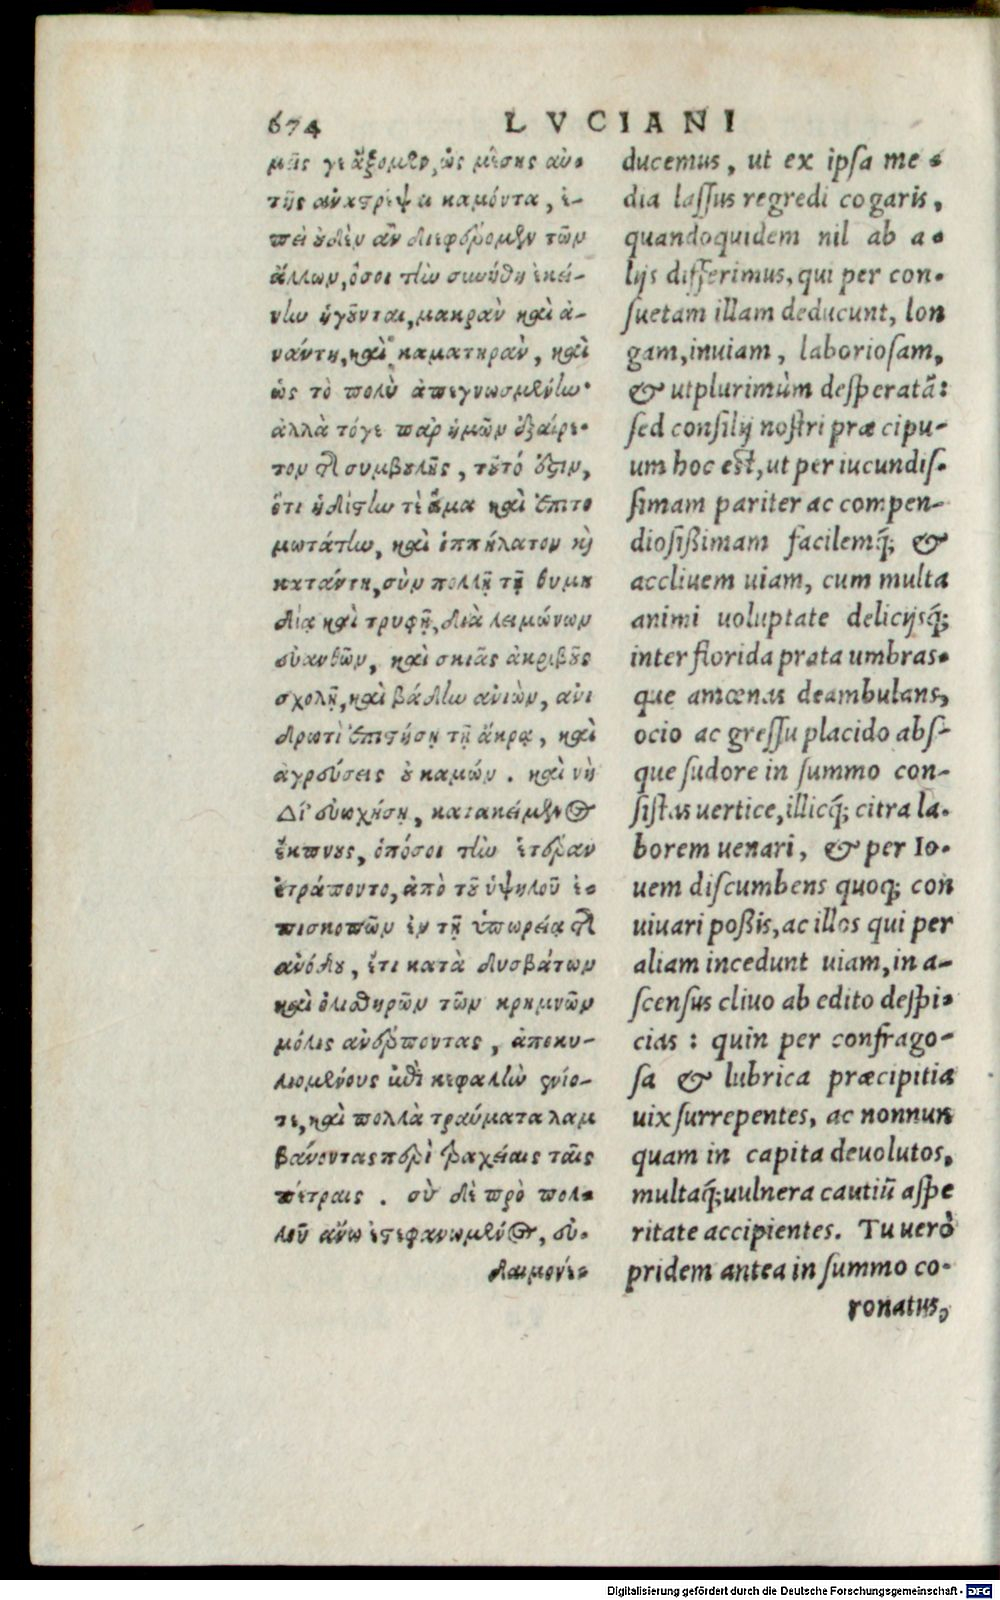 674 LVCIANI
μεῖς γε ἄξομεν, ὡς μέσης αὐ-
τῆς ἀναστρέψαι καμόντα, ἐ-
πεὶ οὐδὲν ἂν διεφέρομεν τῶν
ἄλλων, ὅσοι τὴν συνήθη ἐκεί-
νην ἡγοῦνται, μακρὰν καὶ ἀ-
νάντη, καὶ καματηρὰν, καὶ
ὡς τὸ πολὺ ἀπεγνωσμένην·
ἀλλὰ τόγε παρ ἡμῶν ἐξαίρε-
τον τῆς συμβουλῆς, τοῦτό ἐστιν,
ὅτι ἡδίστην τὲ ἅμα καὶ ἐπιτο
μωτάτην, καὶ ἱππήλατον καὶ
κατάντη, σὺν πολλῇ τῇ θυμη
δίᾳ καὶ τρυφῇ, διὰ λειμώνων
εὐανθῶν, καὶ σκιᾶς ἀκριβοῦς
σχολῇ, καὶ βάδην ἀνιὼν, ἀνι
δρωτὶ ἐπιστήσῃ τῇ ἄκρᾳ, καὶ
ἀγρεύσεις οὐ καμών. καὶ νὴ
Δί εὐωχήσῃ, κατακείμενος
ἐκείνους, ὁπόσοι τὴν ἑτέραν
ἐτράποντο, ἀπὸ τοῦ ὑψηλοῦ ἐ-
πισκοπῶν ἐν τῇ ὑπωρείᾳ τῆς
ἀνόδου, ἔτι κατὰ δυσβάτων
καὶ ὀλισθηρῶν τῶν κρημνῶν
μόλις ἀνέρποντας, ἀποκυ-
λιομένους ἐπὶ κεφαλὴν ἐνίο-
τε, καὶ πολλὰ τραύματα λαμ
βάνοντας περὶ τραχείαις ταῖς
πέτραις. σὺ δὲ πρὸ πολ-
λοῦ ἄνω ἐστεφανωμένος, εὐ-
δαιμονέ-
ducemus, ut ex ipsa me-
dia lassus regredi cogaris,
quandoquidem nil ab a-
lijs differimus, qui per con-
suetam illam deducunt, lon
gam, inuiam, laboriosam,
& utplurimùm desperatã:
sed consilij nostri præcipu-
um hoc est, ut per iucundis-
simam pariter ac compen-
diosißimam facilemq́; &
accliuem uiam, cum multa
animi uoluptate delicijsq́;
inter florida prata umbras-
que amœnas deambulans,
ocio ac gressu placido abs-
que sudore in summo con-
sistas uertice, illicq́; citra la-
borem uenari, & per Io-
uem discumbens quoq; con
uiuari poßis, ac illos qui per
aliam incedunt uiam, in a-
scensus cliuo ab edito despi-
cias: quin per confrago-
sa & lubrica præcipitia
uix surrepentes, ac nonnun
quam in capita deuolutos,
multaq́; uulnera cautiũ aspe
ritate accipientes. Tu uerò
pridem antea in summo co-
ronatus,
Digitalisierung gefördert durch die Deutsche Forschungsgemeinschaft - DFG